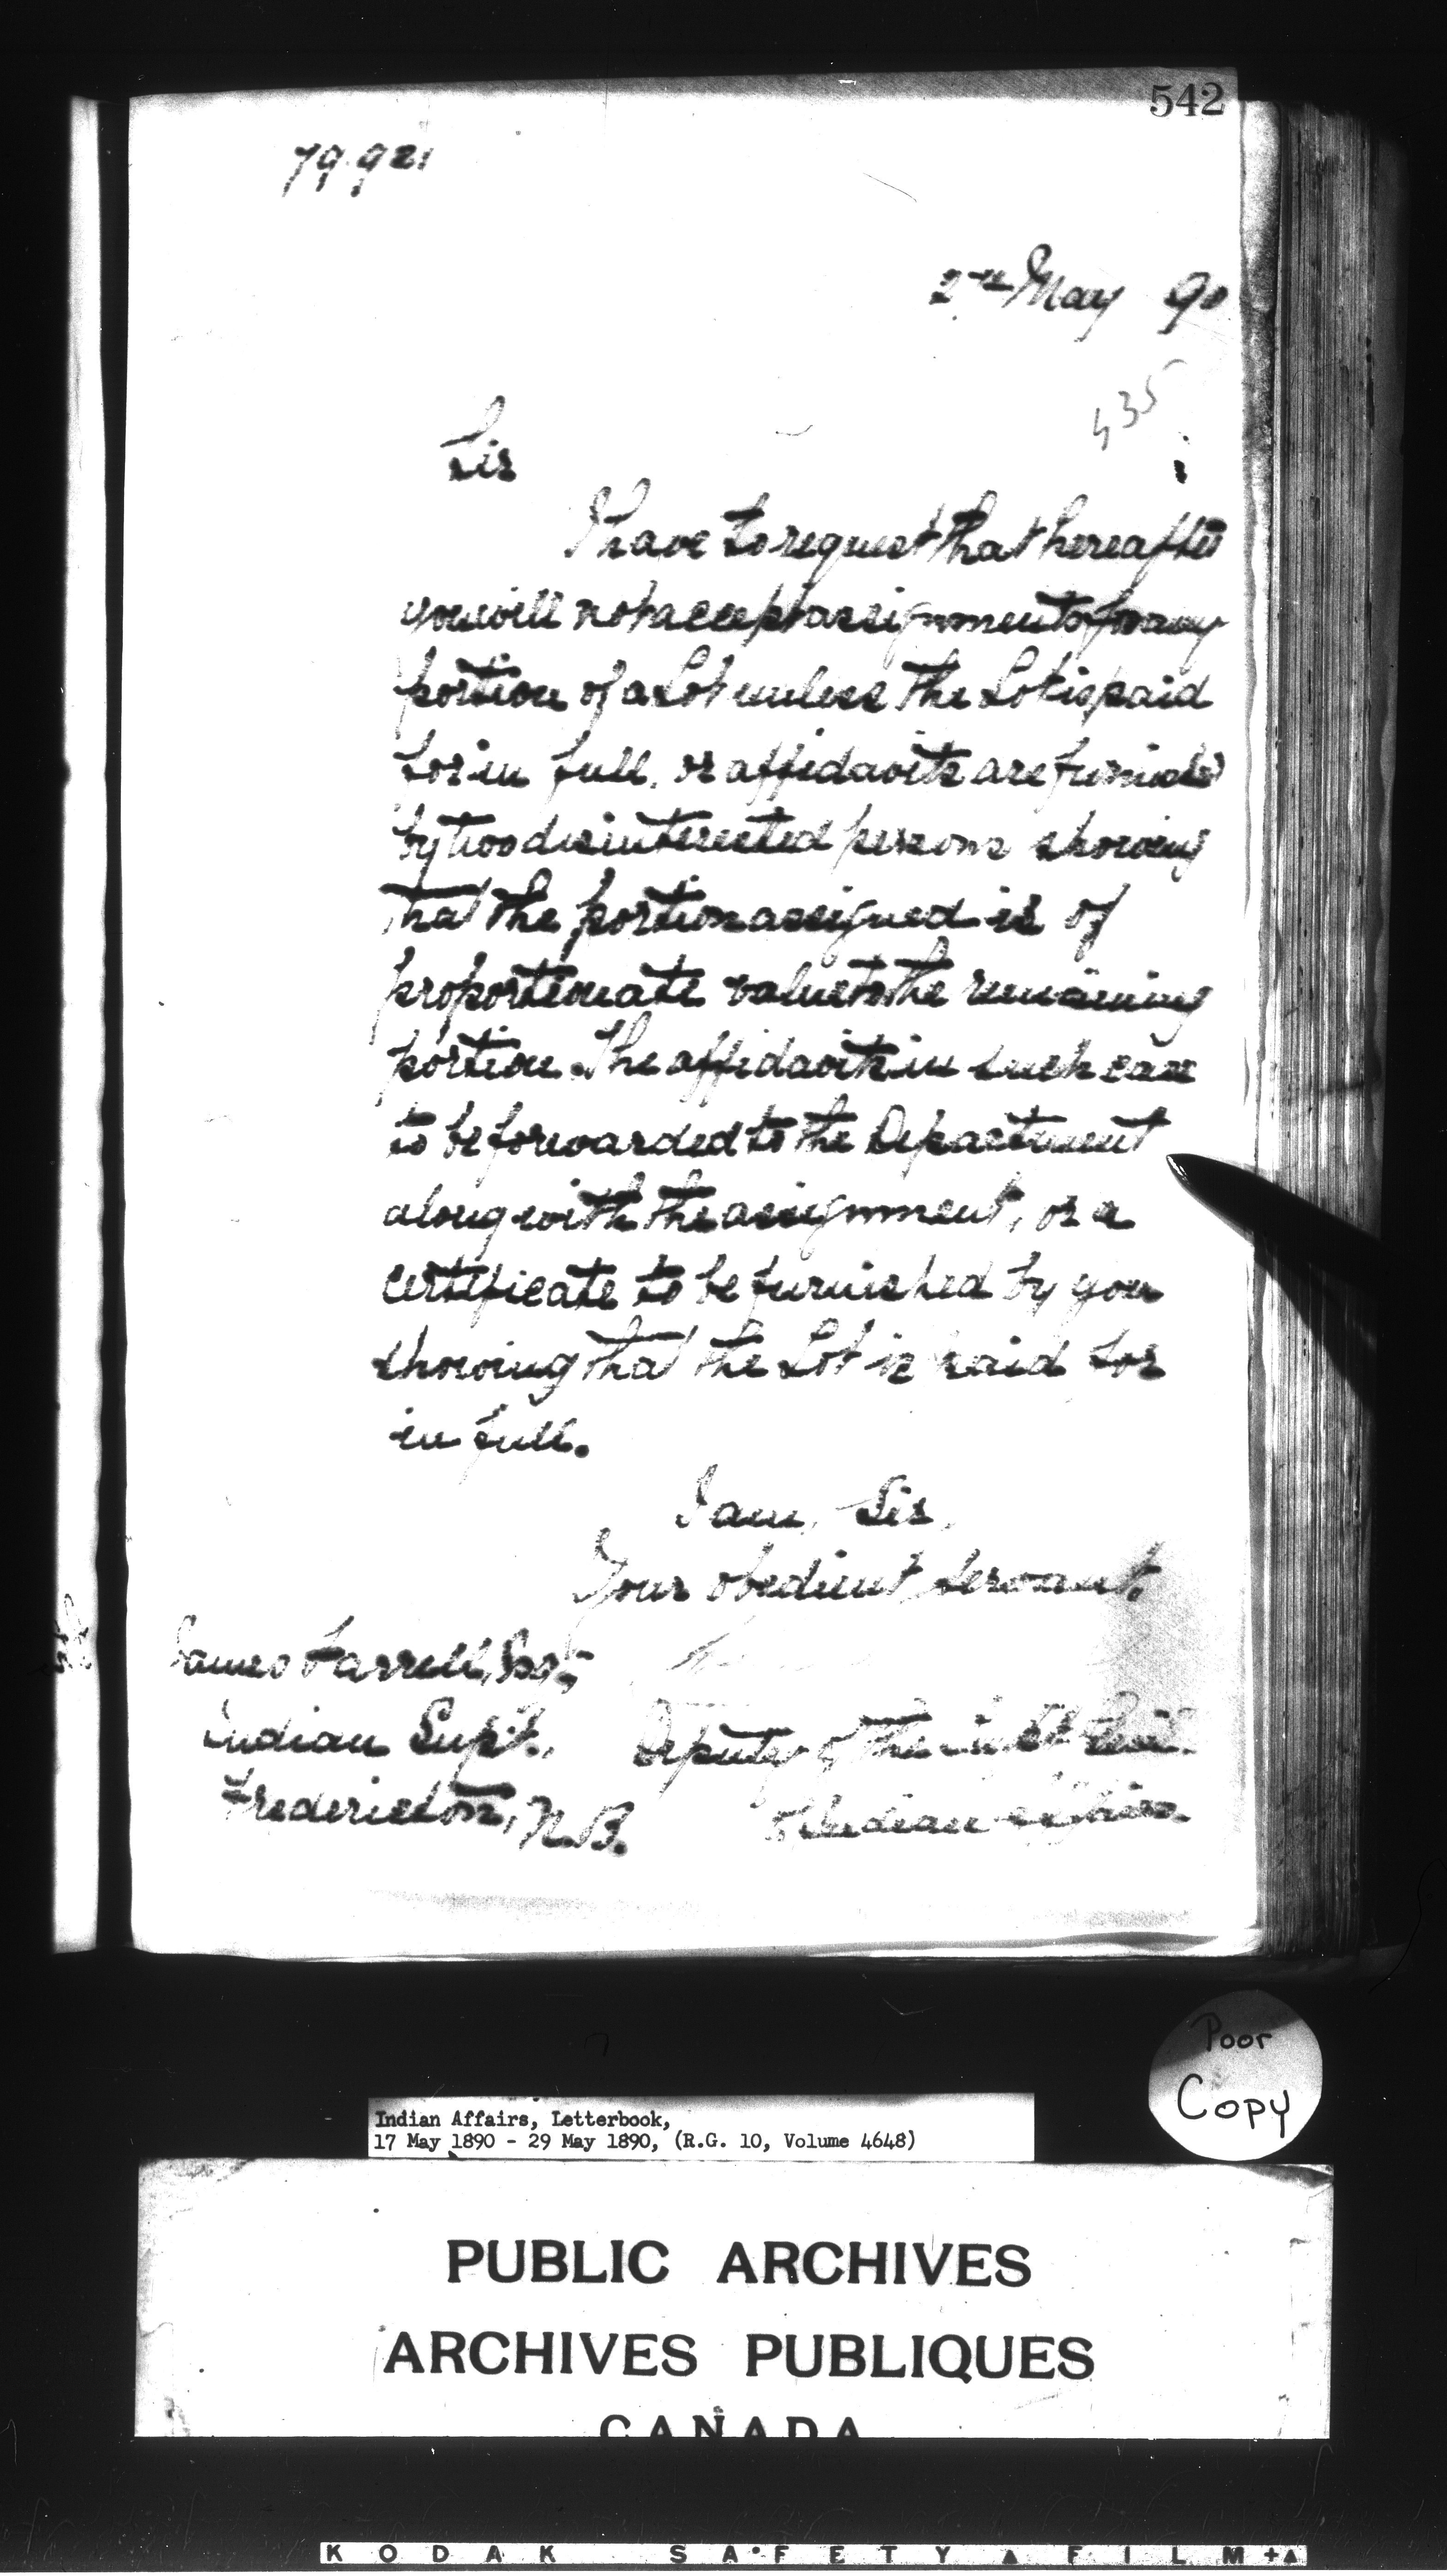 542
79.921
May 90
435
Sir
I have to request that hereafter
you will not accept assignments for any
portion of a Lot unless the Lot is paid
for in full, or affidavits are furnished
by two disinterested persons showing
that the portion assigned is of
proportionate value to the remaining
portion. The affidavits in such case
to be forwarded to the Department
along with the assignment, or a
certificate to be furnished by you
showing that the Lot is paid for
in full.
I am, Sir,
Your obedient servant.
James Farrell, Esq,
Indian Supt.,
Deputy of the Supt. Genl.
Fredericton, N.B.
of Indian Affairs.
Poor
Copy
Indian Affairs, Letterbook,
17 May 1890 - 29 May 1890, (R.G. 10, Volume 4648)
PUBLIC ARCHIVES
ARCHIVES PUBLIQUES
CANADA
KODAK SAFETY ▲ FILM +▲